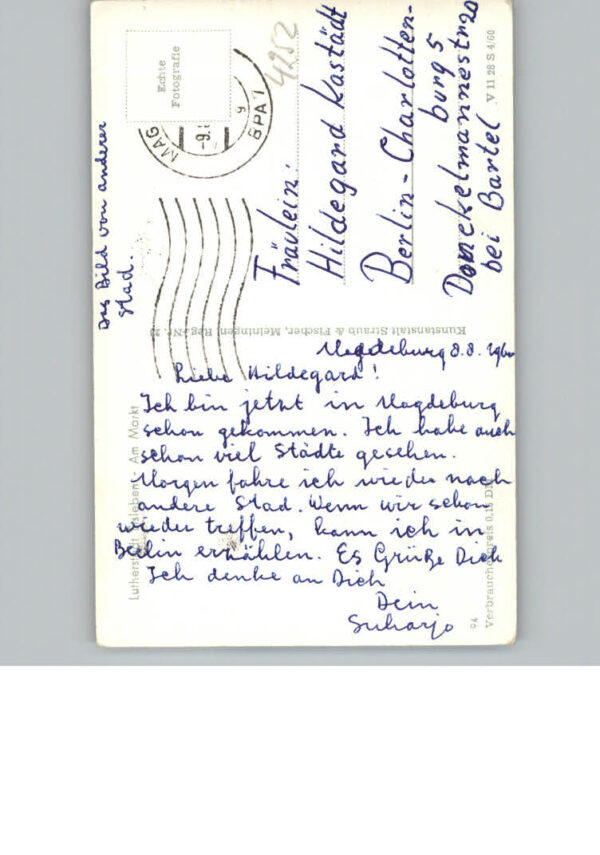 Das Bild von anderer
Stad.
Echte
Fotografie
4252
MAG
-9.
9
BPA 1
Fräulein:
Hildegard Kastädt
Berlin-Charlotten-
burg 5
Danckelmannestr 20
bei Bartel
V 11 28 S 4/60
Kunstanstalt Straub & Fischer, Meiningen, Reg.-Nr.
Magdeburg 8.8.1960
Liebe Hildegard!
Ich bin jetzt in Magdeburg
schon gekommen. Ich habe auch
schon viel Städte gesehen.
Morgen fahre ich wieder nach
andere Stad. Wenn wir schon
wieder treffen, kann ich in
Berlin erzählen. Es Grüße Dich
Ich denke an Dich
Dein
Suharjo
Lutherstadt Eisleben - Am Markt
94
Verbraucherpreis 0,15 DM